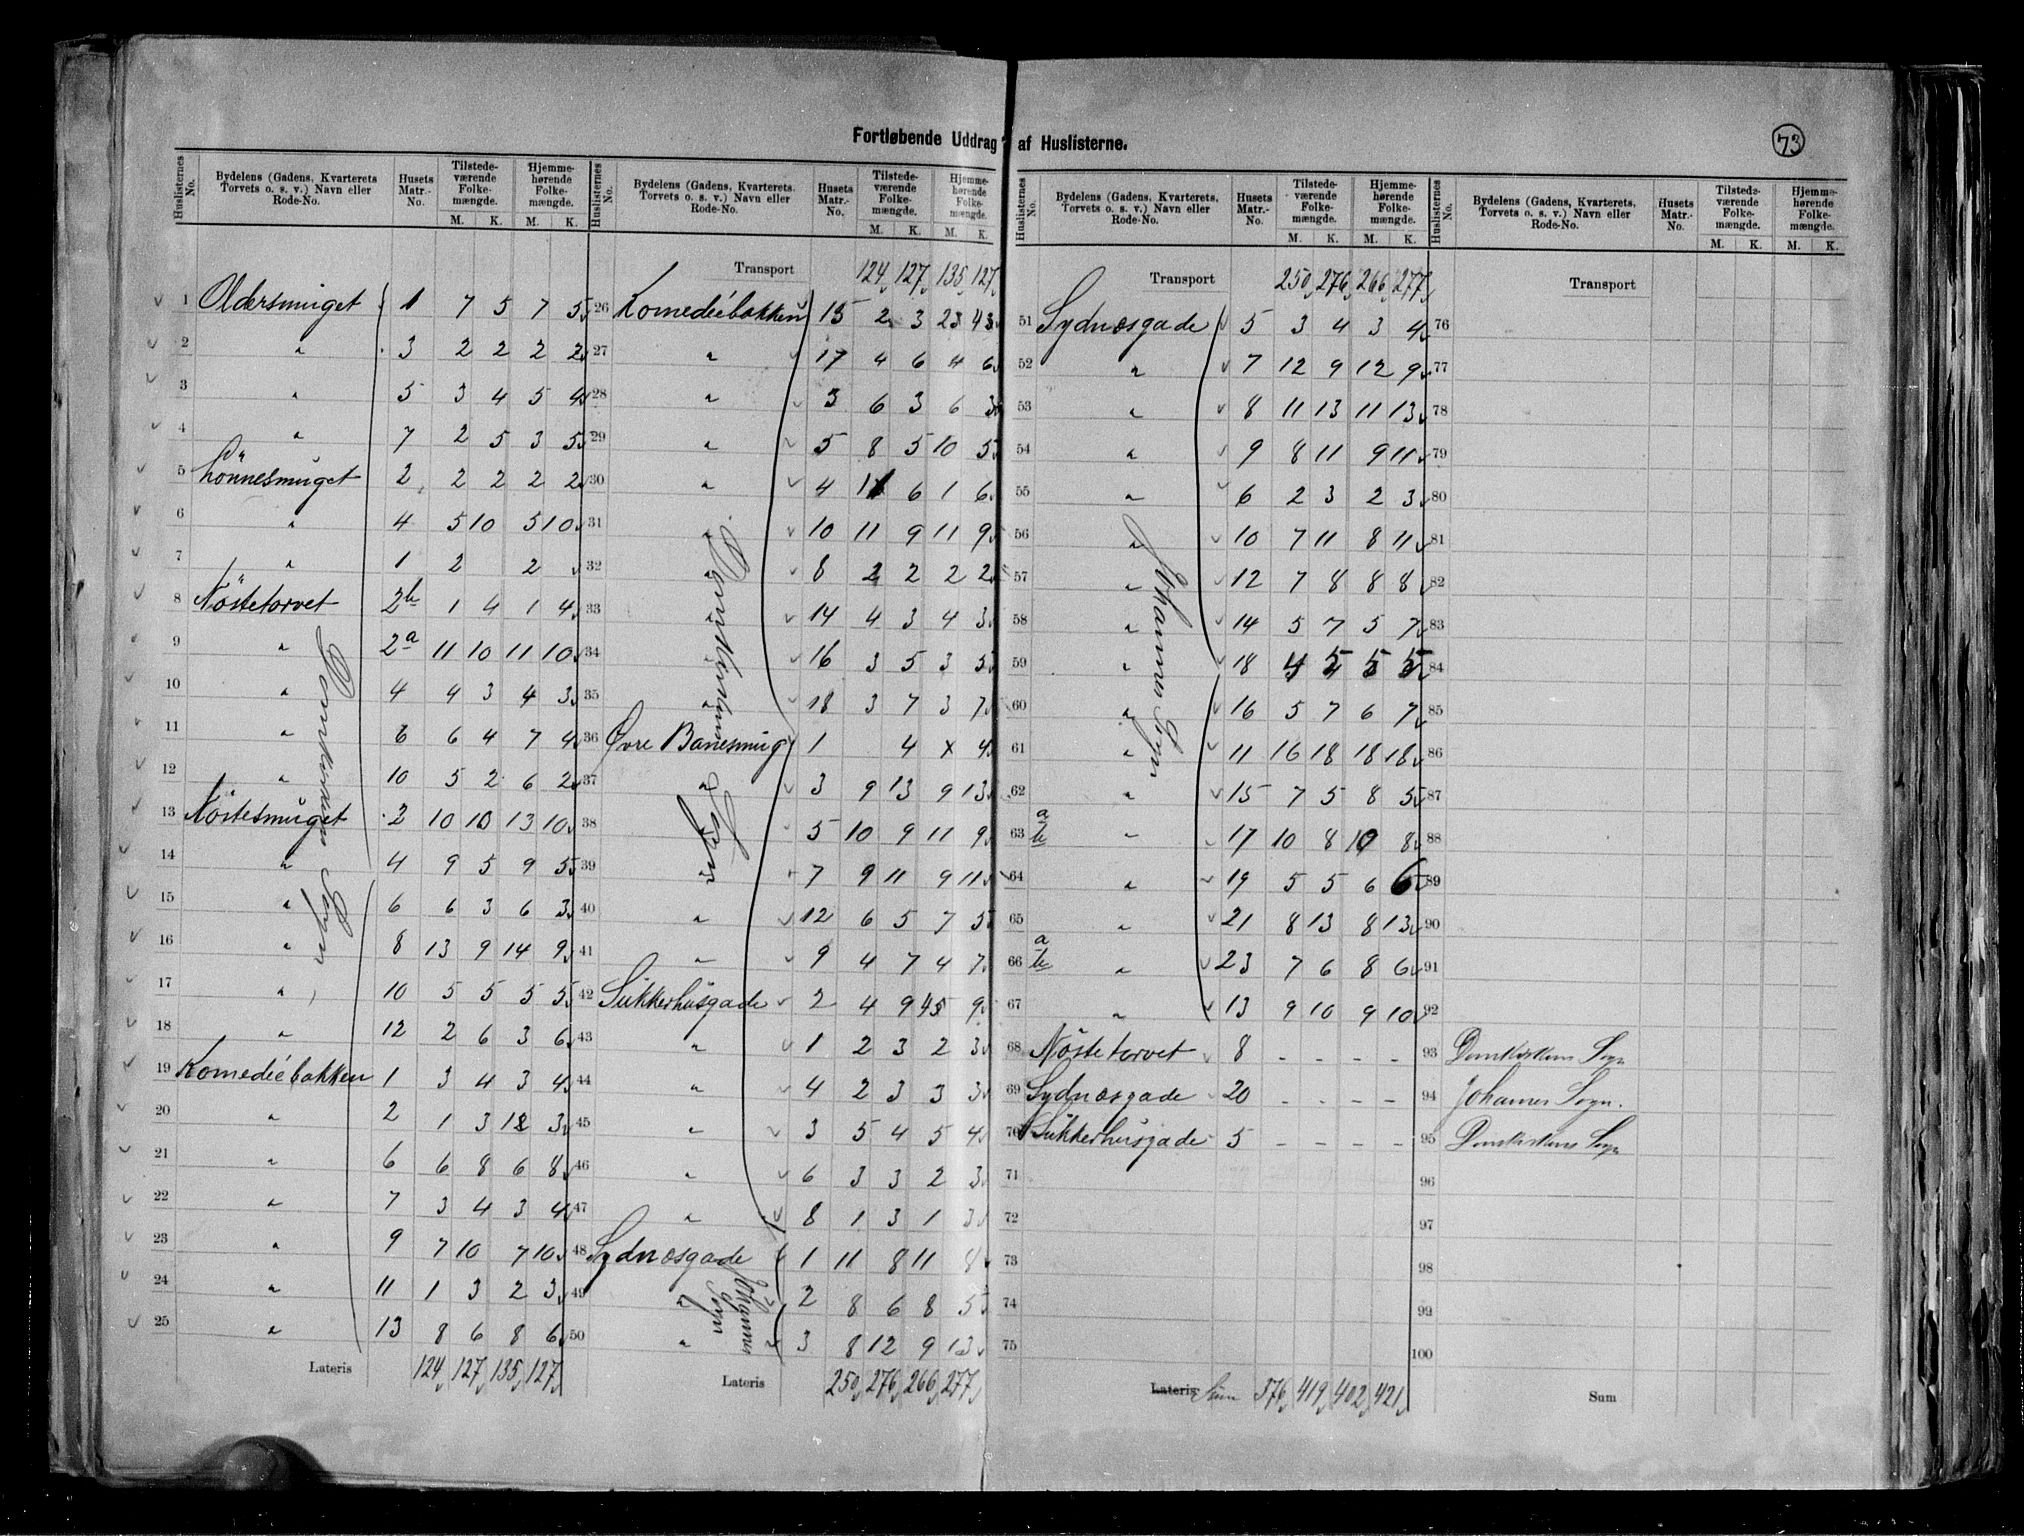 Fortløbende Uddrag af Huslisterne.
73
Huslisternes No. Bydelens (Gadens, Kvarterets Torvets o. s. v.) Navn eller Rode-No. Husets Matr.-No. Tilstede-værende Folke-mængde. M. K. Hjemme-hørende Folke-mængde. M. K.
1 Oldersmuget 1 7 5 7 5
2 " 3 2 2 2 2
3 " 5 3 4 5 4
4 " 7 2 5 3 5
5 Lönnesmuget 2 2 2 2 2
6 " 4 5 10 5 10
7 " 1 2 2
8 Nöstetorvet 2b 1 4 1 4
9 " 2a 11 10 11 10
10 " 4 4 3 4 3
11 " 6 6 4 7 4
12 " 10 5 2 6 2
13 Nöstesmuget 2 10 10 13 10
14 " 4 9 5 9 5
15 " 6 6 3 6 3
16 " 8 13 9 14 9
17 " 10 5 5 5 5
18 " 12 2 6 3 6
19 Komediebakken 1 3 4 3 4
20 " 2 1 3 3
21 " 6 6 8 6 8
22 " 7 3 4 3 4
23 " 9 7 10 7 10
24 " 11 1 3 2 3
25 " 13 8 6 8 6
Domkirkens Sogn
Lateris 124 127 135 127
Huslisternes No. Bydelens (Gadens, Kvarterets, Torvets o. s. v.) Navn eller Rode-No. Husets Matr.-No. Tilstede-værende Folke-mængde. M. K. Hjemme-hørende Folke-mængde. M. K.
Transport 124 127 135 127
26 Komediebakken 15 2 3
27 " 17 4 6 4 6
28 " 3 6 3 6 3
29 " 5 8 5 10 5
30 " 4 6 1 6
31 " 10 11 9 11 9
32 " 8 2 2 2 2
33 " 14 4 3 4 3
34 " 16 3 5 3 5
35 " 18 3 7 3 7
36 Øvre Banesmug 1 4 x 4
37 " 3 9 13 9 13
38 5 10 9 11 9
39 " 7 9 11 9 11
40 " 12 6 5 7 5
41 " 9 4 7 4 7
42 Sukkerhusgade 2 4 9 9
43 " 1 2 3 2 3
44 " 4 2 3 3 3
45 " 3 5 4 5 4
46 " 6 3 3 2 3
47 " 8 1 3 1 3
Domkirkens Sogn
48 Sydnæsgade 1 11 8 11 8
49 " 2 8 6 8 5
50 " 3 8 12 9 13
Johannes Sogn
Lateris 250 276 266 277
Huslisternes No. Bydelens (Gadens, Kvarterets, Torvets o. s. v.) Navn eller Rode-No. Husets Matr.-No. Tilstede-værende Folke-mængde. M. K. Hjemme-hørende Folke-mængde. M. K.
Transport 250 276 266 277
51 Sydnæsgade 5 3 4 3 4
52 " 7 12 9 12 9
53 " 8 11 13 11 13
54 " 9 8 11 9 11
55 " 6 2 3 2 3
56 " 10 7 11 8 11
57 " 12 7 8 8 8
58 " 14 5 7 5 7
59 " 18 4 5 5 5
60 " 16 5 7 6 7
61 " 11 16 18 18 18
62 " 15 7 5 8 5
63 a b " 17 10 8 10 8
64 " 19 5 5 6 6
65 " 21 8 13 8 13
66 a b " 23 7 6 8 6
67 " 13 9 10 9 10
Johannes Sogn
68 Nöstetorvet 8 - - - -
69 Sydnæsgade 20 - - - -
70 Sukkerhusgade 5 - - - -
71
72
73
74
75
Lateris Sum 376 419 402 421
Huslisternes No. Bydelens (Gadens, Kvarterets, Torvets o. s. v.) Navn eller Rode-No. Husets Matr.-No. Tilstede-værende Folke-mængde. M. K. Hjemme-hørende Folke-mængde. M. K.
Transport
76
77
78
79
80
81
82
83
84
85
86
87
88
89
90
91
92
93 Domkirkens Sogn
94 Johannes Sogn.
95 Domkirkens Sogn
96
97
98
99
100
Sum